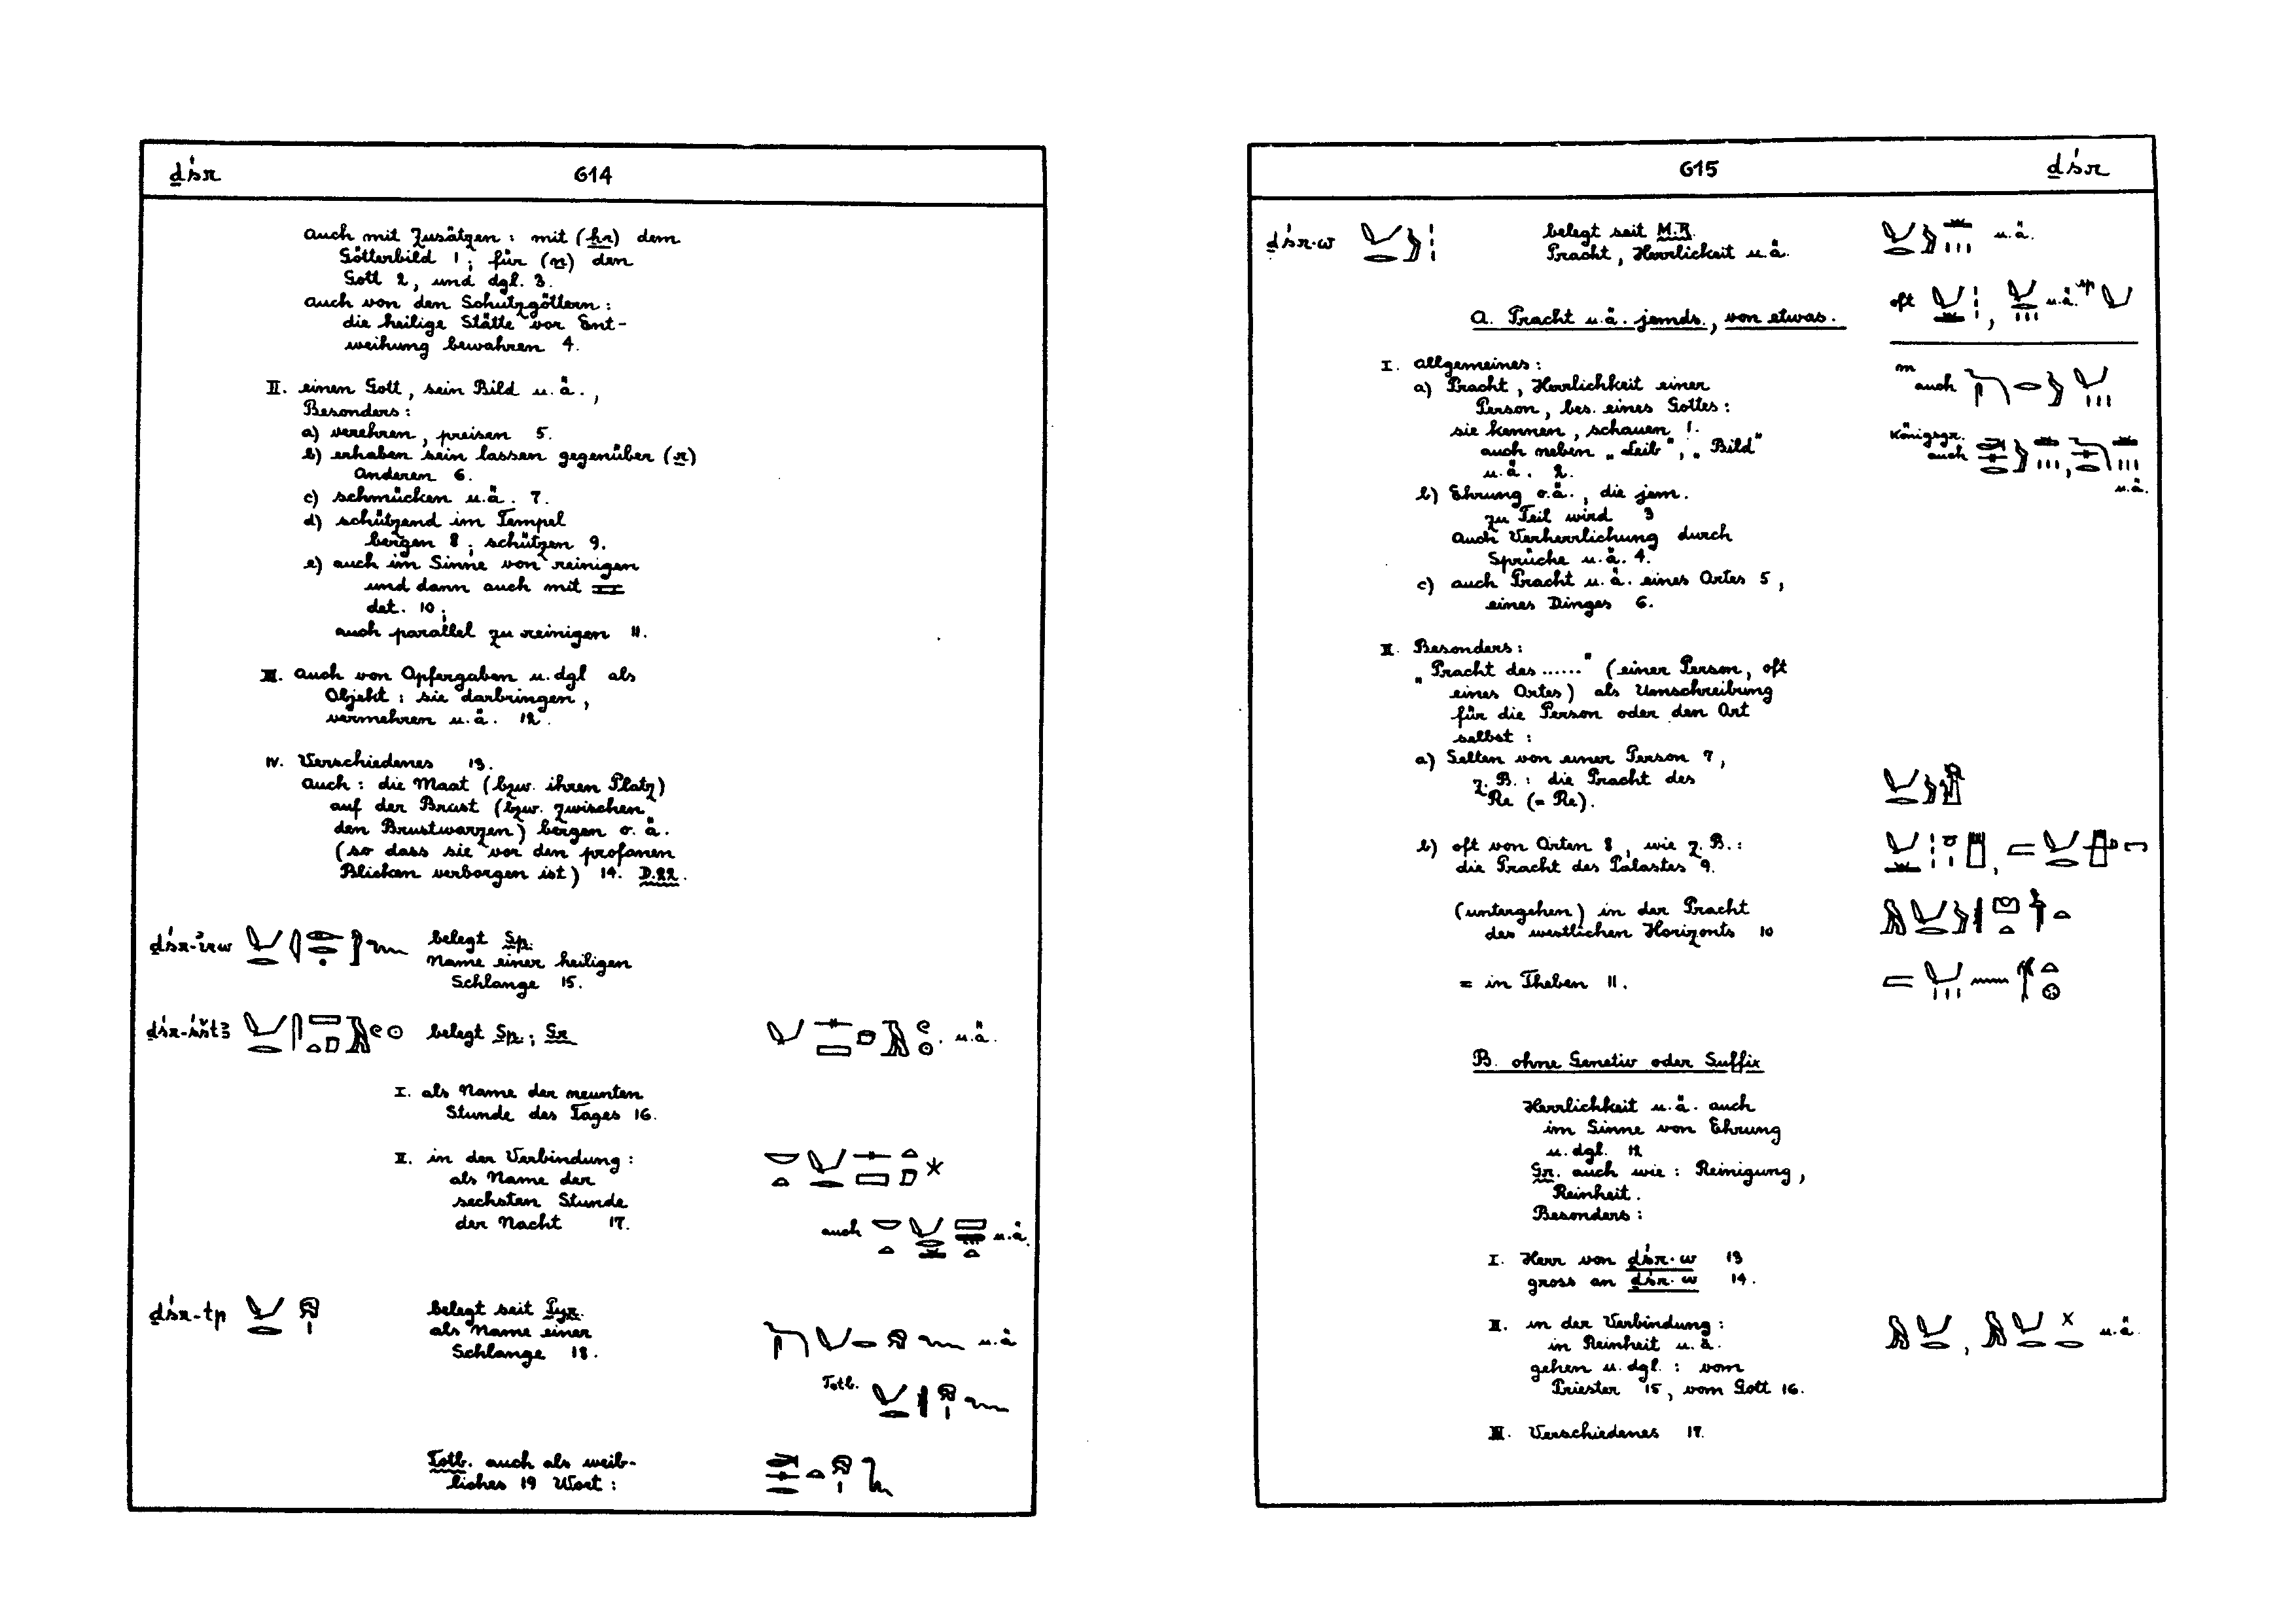 ḏśr 614
auch mit Zusätzen : mit (ẖr) dem
Götterbild 1 ; für (n) den
Gott 2, und dgl. 3.
auch von den Schutzgöttern :
die heilige Stätte vor Ent-
weihung bewahren 4.
II. einen Gott, sein Bild u. ä.,
Besonders :
a) verehren, preisen 5.
b) erhaben sein lassen gegenüber (r)
Anderen 6.
c) schmücken u. ä. 7.
d) schützend im Tempel
bergen 8 ; schützen 9.
e) auch im Sinne von reinigen
und dann auch mit
det. 10 ;
auch parallel zu reinigen 11.
III. auch von Opfergaben u. dgl als
Objekt : sie darbringen,
vermehren u. ä. 12.
IV. Verschiedenes 13.
auch : die Maat (bzw. ihren Platz)
auf der Brust (bzw. zwischen
den Brustwarzen) bergen o. ä.
(so dass sie vor den profanen
Blicken verborgen ist) 14. D.22.
ḏśr-ı͗rw belegt Sp.
Name einer heiligen
Schlange 15.
ḏśr-śštꜣ belegt Sp. ; Gr. u. ä.
I. als Name der neunten
Stunde des Tages 16.
II. in der Verbindung :
als Name der
sechsten Stunde
der Nacht 17.
auch u. ä.
ḏśr-tp belegt seit Pyr.
als Name einer
Schlange 18. u. ä
Totb.
Totb. auch als weib-
liches 19 Wort :
615 ḏśr
ḏśr·w belegt seit M.R. u. ä.
Pracht, Herrlichkeit u. ä.
oft , u. ä. sp
A. Pracht u. ä. jemds., von etwas.
m
auch
Königsgr.
auch ,
u. ä.
I. Allgemeines :
a) Pracht, Herrlichkeit einer
Person, bes. eines Gottes :
sie kennen, schauen 1.
auch neben „Leib", „Bild"
u. ä. 2.
b) Ehrung o. ä., die jem.
zu Teil wird 3
auch Verherrlichung durch
Sprüche u. ä. 4.
c) auch Pracht u. ä. eines Ortes 5,
eines Dinges 6.
II. Besonders :
„Pracht des ......" (einer Person, oft
eines Ortes) als Umschreibung
für die Person oder den Ort
selbst :
a) Selten von einer Person 7,
z. B. : die Pracht des
Re (= Re).
b) oft von Orten 8, wie z. B. :
die Pracht des Palastes 9.
(untergehen) in der Pracht
des westlichen Horizonts 10
= in Theben 11.
B. ohne Genetiv oder Suffix
Herrlichkeit u. ä. auch
im Sinne von Ehrung
u. dgl. 12
Gr. auch wie : Reinigung,
Reinheit.
Besonders :
I. Herr von ḏśr·w 13
gross an ḏśr·w 14.
II. in der Verbindung :
in Reinheit u. ä.
gehen u. dgl. : vom
Priester 15, vom Gott 16.
, u. ä.
III. Verschiedenes 17.